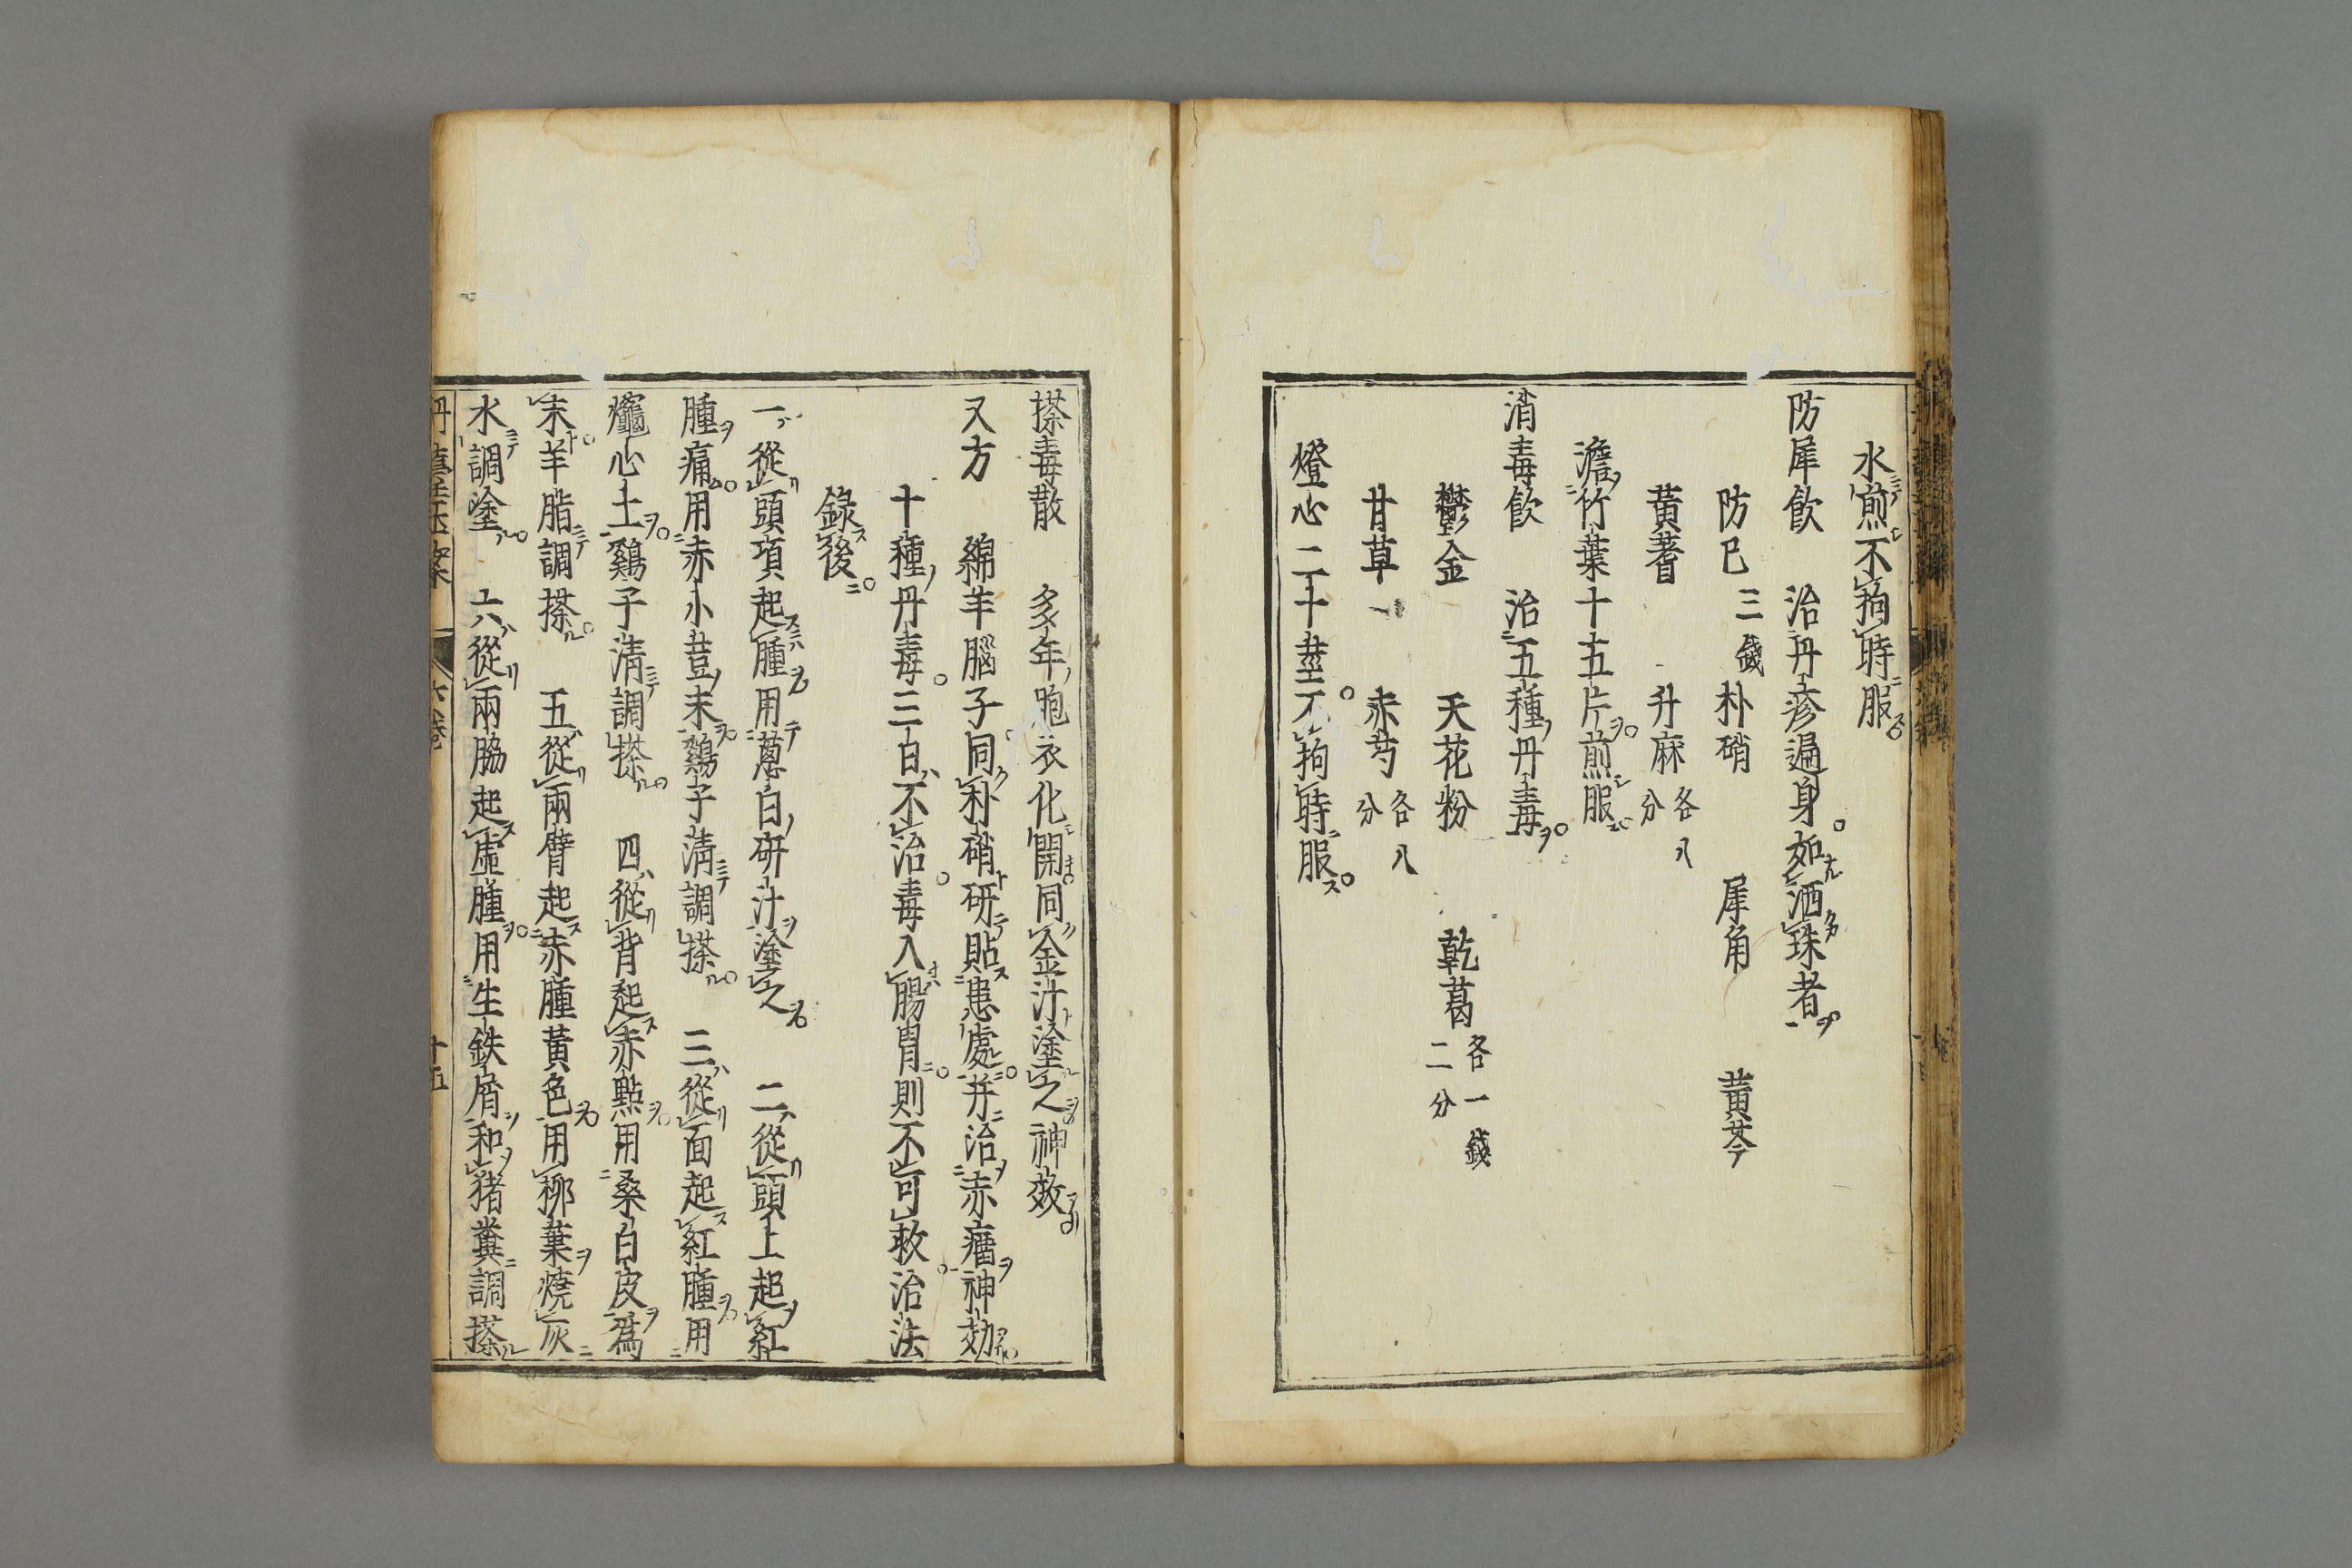 水煎不拘時服
防犀飲　治丹疹遍身如洒珠者
防已三錢　朴硝　犀角　黄芩
黄蓍　升麻各八分
澹竹葉十五片煎服
消毒飲　治五種丹毒
鬱金　天花粉　乾葛各一錢二分
甘草　赤芍各八分
燈心二十莖不拘時服
搽毒散　多年胞衣化開同金汁塗之神效
又方　綿羊腦子同朴硝研貼患處并治赤瘤神効
十種丹毒三日不治毒入腸胃則不可救治法
錄後
一從頭項起腫用蔥白研汁塗之　二從頭上起紅
腫痛用赤小荳末鷄子清調搽　三從面起紅腫用
竈心土鷄子清調搽　四從背起赤點用桑白皮爲
末羊脂調搽　五從兩臂起赤腫黃色用栁葉燒灰
水調塗　六從兩脇起虛腫用生鉄屑和猪糞調搽
丹臺玉案　六卷　十五